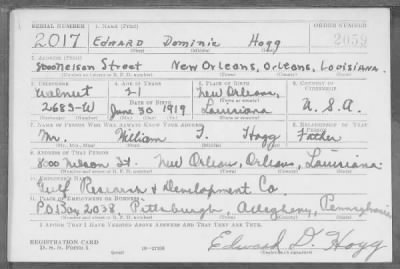 SERIAL NUMBER 1. NAME (Print) ORDER NUMBER
2017 EDWARD Dominic Hogg 2059
(First) (Middle) (Last)
2. ADDRESS (Print)
8000 Nelson Street New Orleans, Orleans, Louisiana.
(Number and street or R. F. D. number) (Town) (County) (State)
3. TELEPHONE 4. AGE IN YEARS 5. PLACE OF BIRTH 6. COUNTRY OF CITIZENSHIP
Walnut 21 New Orleans,
DATE OF BIRTH (Town or county)
2683-W June 30 1919 Louisiana U.S.A.
(Exchange) (Number) (Mo.) (Day) (Yr.) (State or country)
7. NAME OF PERSON WHO WILL ALWAYS KNOW YOUR ADDRESS 8. RELATIONSHIP OF THAT PERSON
Mr. William J. Hogg Father
(Mr., Mrs., Miss) (First) (Middle) (Last)
9. ADDRESS OF THAT PERSON
8000 Nelson St. New Orleans, Orleans, Louisiana.
(Number and street or R. F. D. number) (Town) (County) (State)
10. EMPLOYER'S NAME
Gulf Research & Development Co.
11. PLACE OF EMPLOYMENT OR BUSINESS
P.O. Box 2038, Pittsburgh, Allegheny, Pennsylvania
(Number and street or R. F. D. number) (Town) (County) (State)
I AFFIRM THAT I HAVE VERIFIED ABOVE ANSWERS AND THAT THEY ARE TRUE.
REGISTRATION CARD
D. S. S. FORM 1 16-17105 Edward D. Hogg
(Registrant's signature)